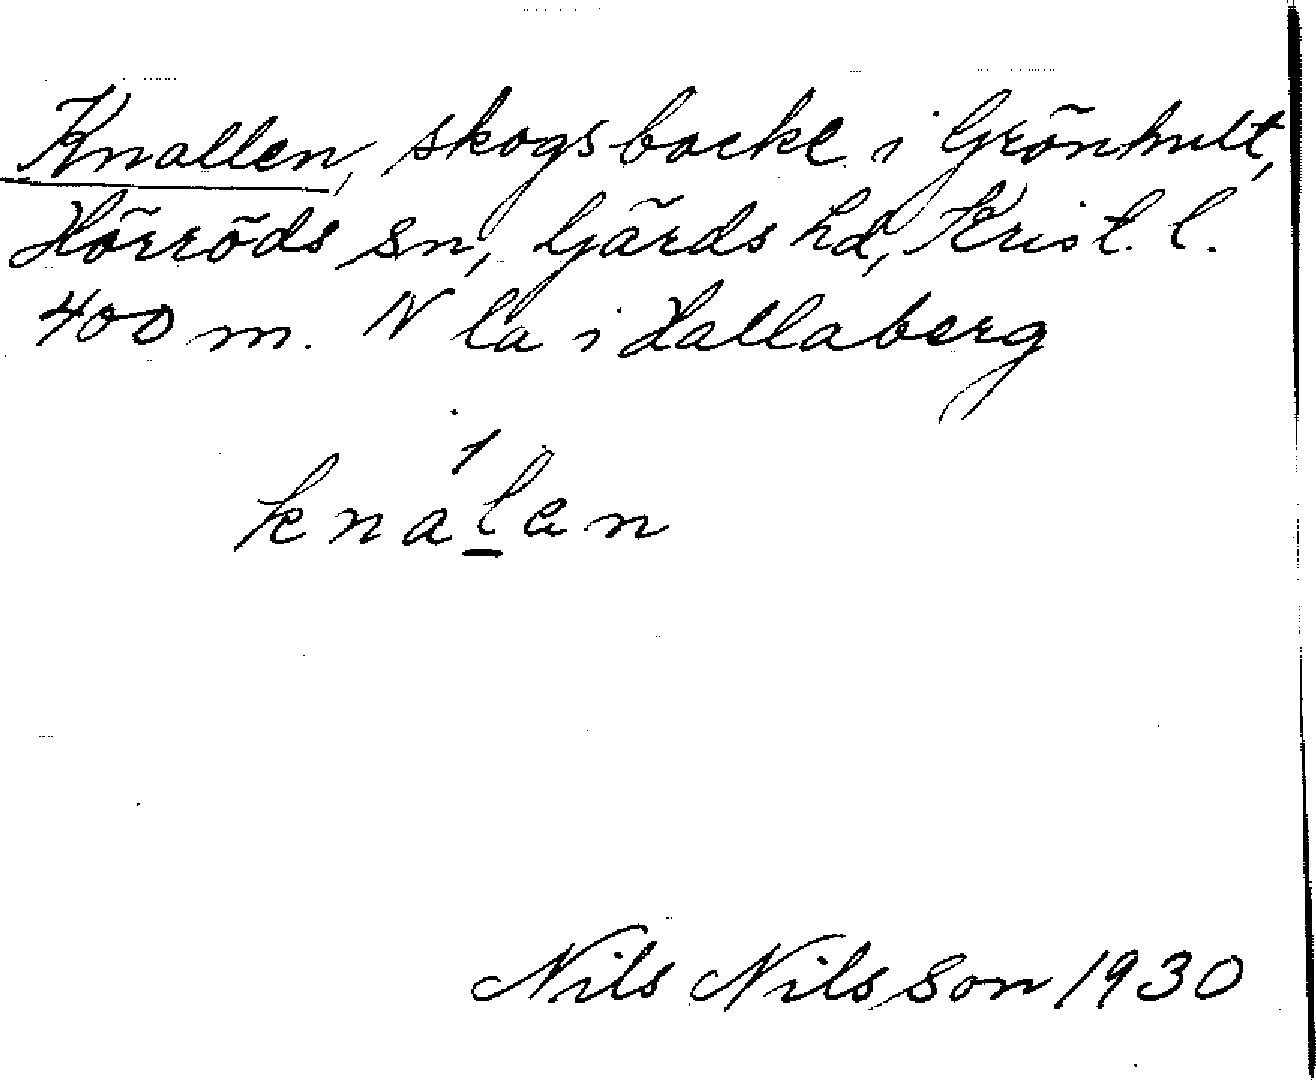 Knallen, skogsbacke i Grönhult,
Hörröds sn, Gärds hd, Krist. l.
400 m. N la i Hallaberg
knal̲en
Nils Nilsson 1930